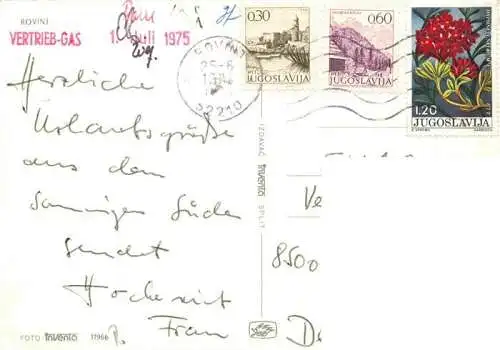 ROVINJ
VERTRIEB-GAS 1. Juli 1975
0.30
JUGOSLAVIJA
0.60
JUGOSLAVIJA
1.20
JUGOSLAVIJA
ROVINJ
25-6
52210
Herzliche
Urlaubsgrüße
aus dem
sonnigen Süden
sendet
Frau
IZDAVAČ Inventa SPLIT
8500
FOTO Inventa 11966